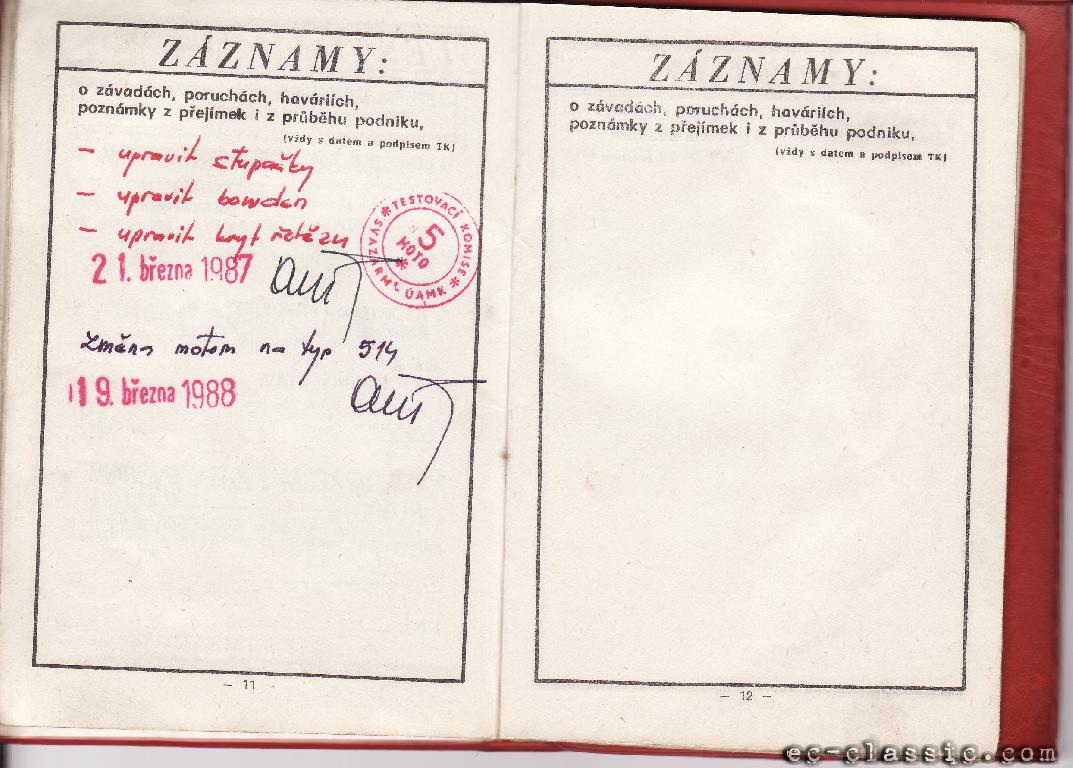 ZÁZNAMY:
o závadách, poruchách, haváriích,
poznámky z přejímek i z průběhu podniku,
(vždy s datem a podpisem TK)
- upravit stupačky
- upravit bowden
- upravit kryt řetězu
SVAZARM ÚAMK * TESTOVACÍ KOMISE *
5
MOTO
21. března 1987
změna motoru na typ 514
19. března 1988
- 11 -
ZÁZNAMY:
o závadách, poruchách, haváriích,
poznámky z přejímek i z průběhu podniku,
(vždy s datem a podpisem TK)
- 12 -
ec-classic.com